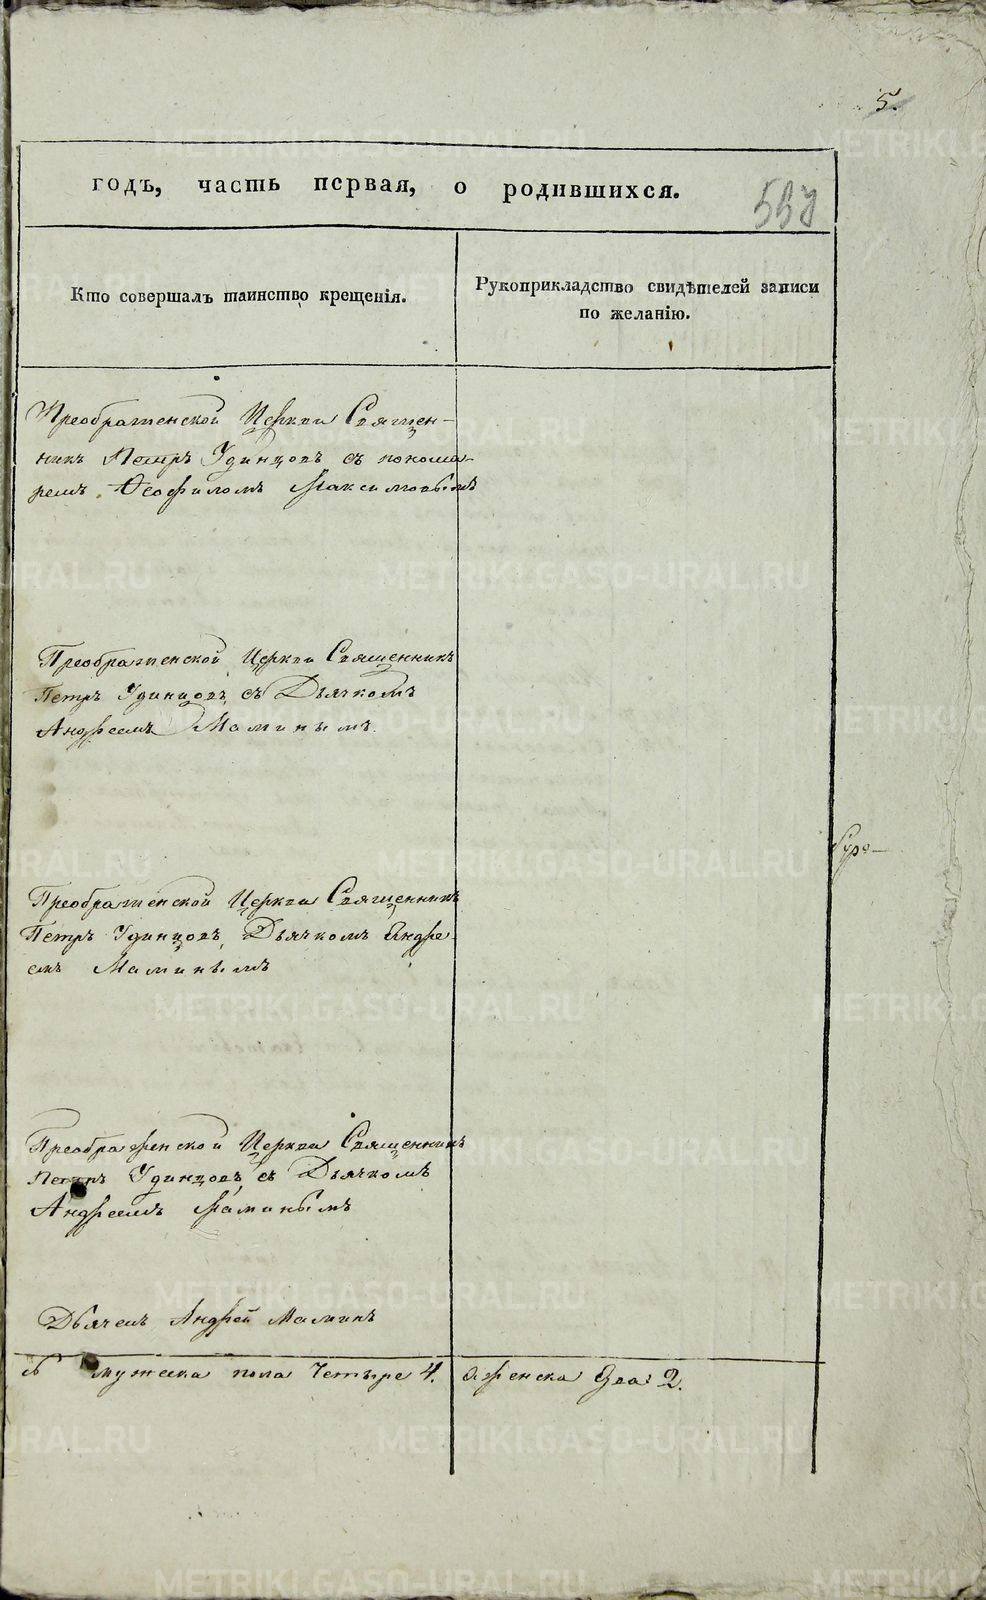 5.
годъ, часть первая, о родившихся.
Кто совершалъ таинство крещенія.
Рукоприкладство свидѣтелей записи
по желанію.
Преображенской Церкви Священ-
никъ Петръ Удинцовъ съ понома-
ремъ Ѳеофиломъ Максимовымъ
Преображенской Церкви Священникъ
Петръ Удинцовъ съ Дьячкомъ
Андреемъ Маминымъ.
Преображенской Церкви Священникъ
Петръ Удинцовъ, Дьячкомъ Андре-
емъ Маминымъ
Преображенской Церкви Священникъ
Петръ Удинцовъ, съ Дьячкомъ
Андреемъ Маминымъ
Дьячекъ Андрей Маминъ
мужеска пола Четыре 4. женска Два 2.
METRIKI.GASO-URAL.RU